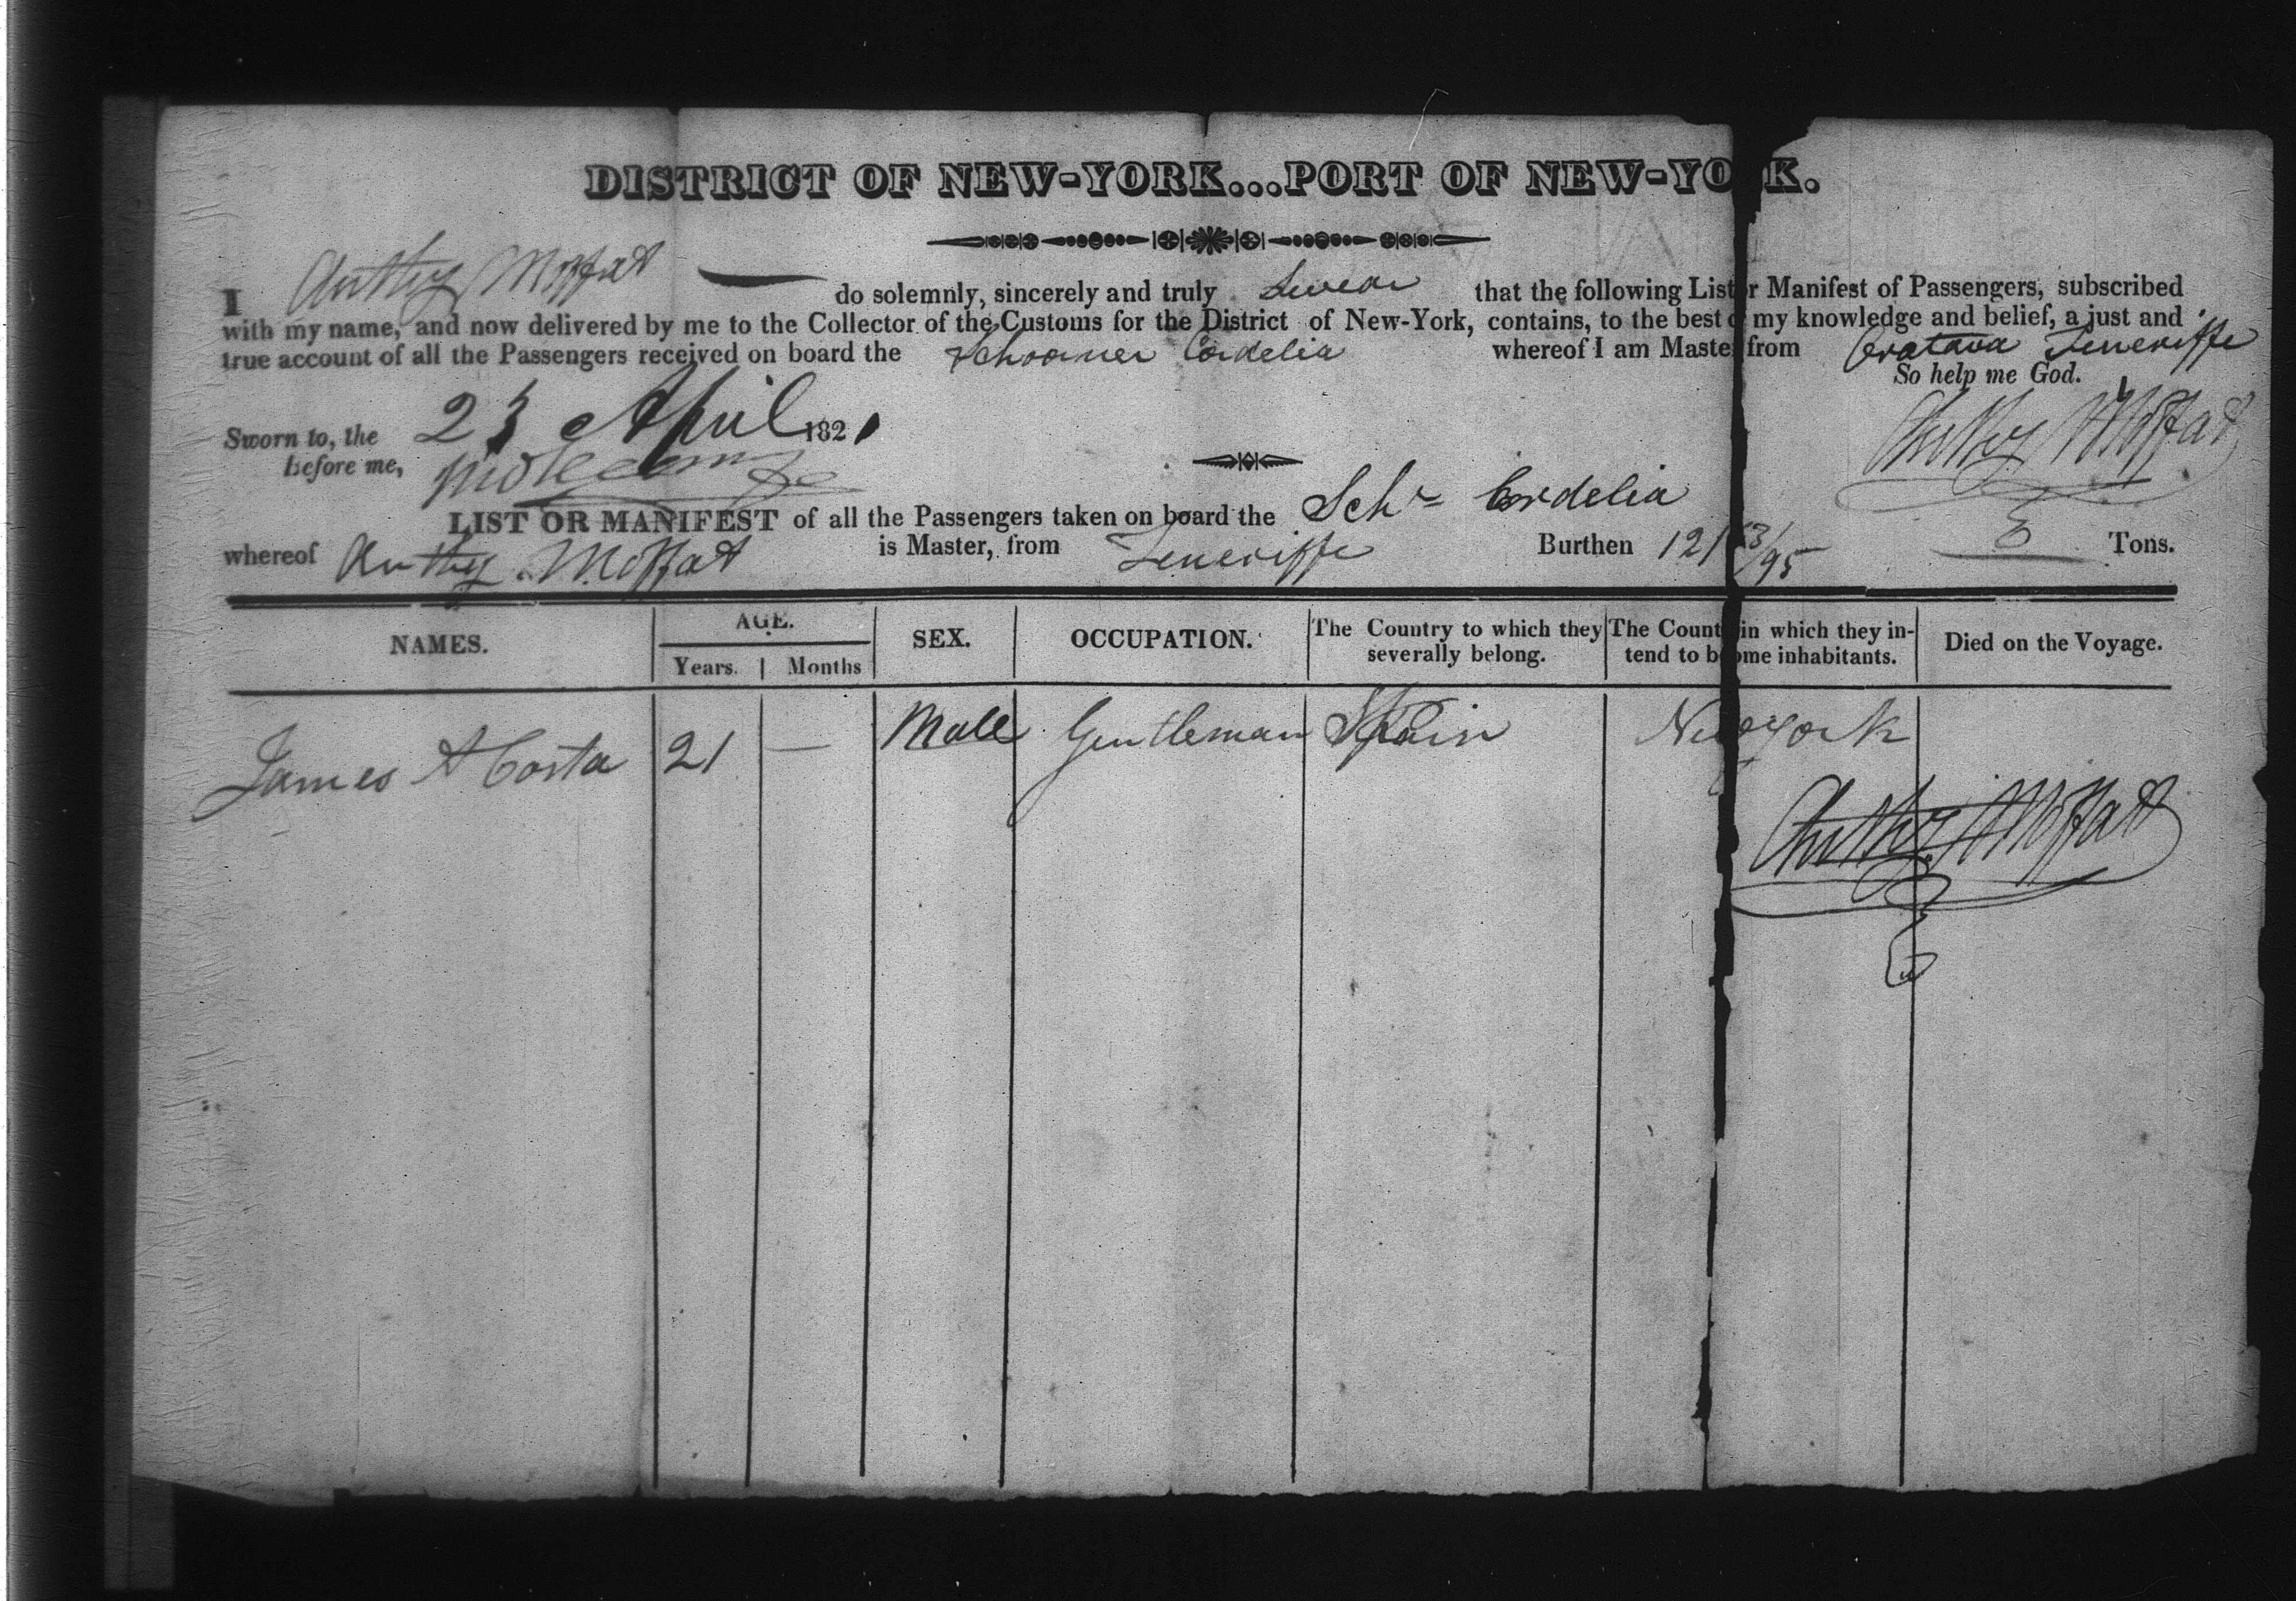 DISTRICT OF NEW-YORK...PORT OF NEW-YO K.
I Anthy Moffat do solemnly, sincerely and truly Swear that the following List r Manifest of Passengers, subscribed
with my name, and now delivered by me to the Collector of the Customs for the District of New-York, contains, to the best my knowledge and belief, a just and
true account of all the Passengers received on board the Schooner Cordelia whereof I am Maste from Oratava Teneriffe
So help me God.
Sworn to, the 23 April 1821
before me,
Anthy Moffat
LIST OR MANIFEST of all the Passengers taken on board the Schr Cordelia
whereof Anthy Moffat is Master, from Teneriffe Burthen 121 /95 Tons.
NAMES. AGE. SEX. OCCUPATION. The Country to which they severally belong. The Count in which they in-tend to b ome inhabitants. Died on the Voyage.
Years. Months
James A Costa 21 — Male Gentleman Spain New York
Anthy Moffat